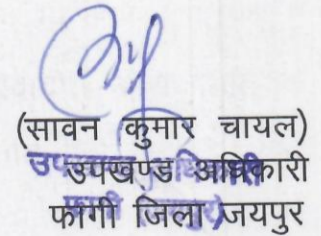 (सावन कुमार चायल)
उपखण्ड अधिकारी
फागी जिला जयपुर